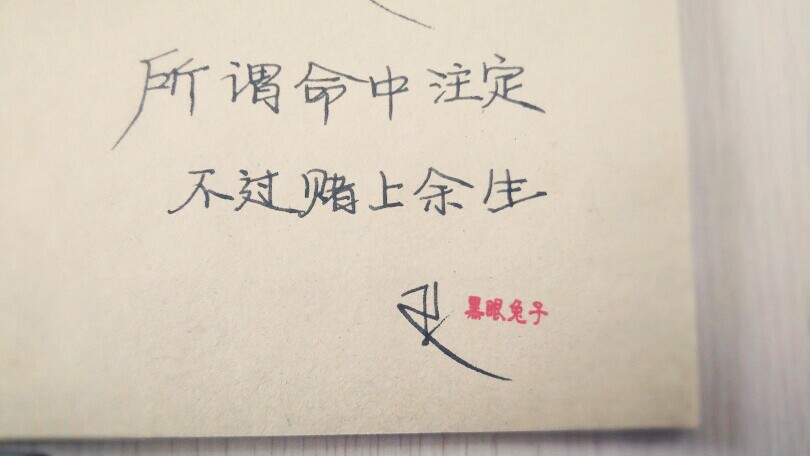 所谓命中注定
不过赌上余生
黑眼兔子